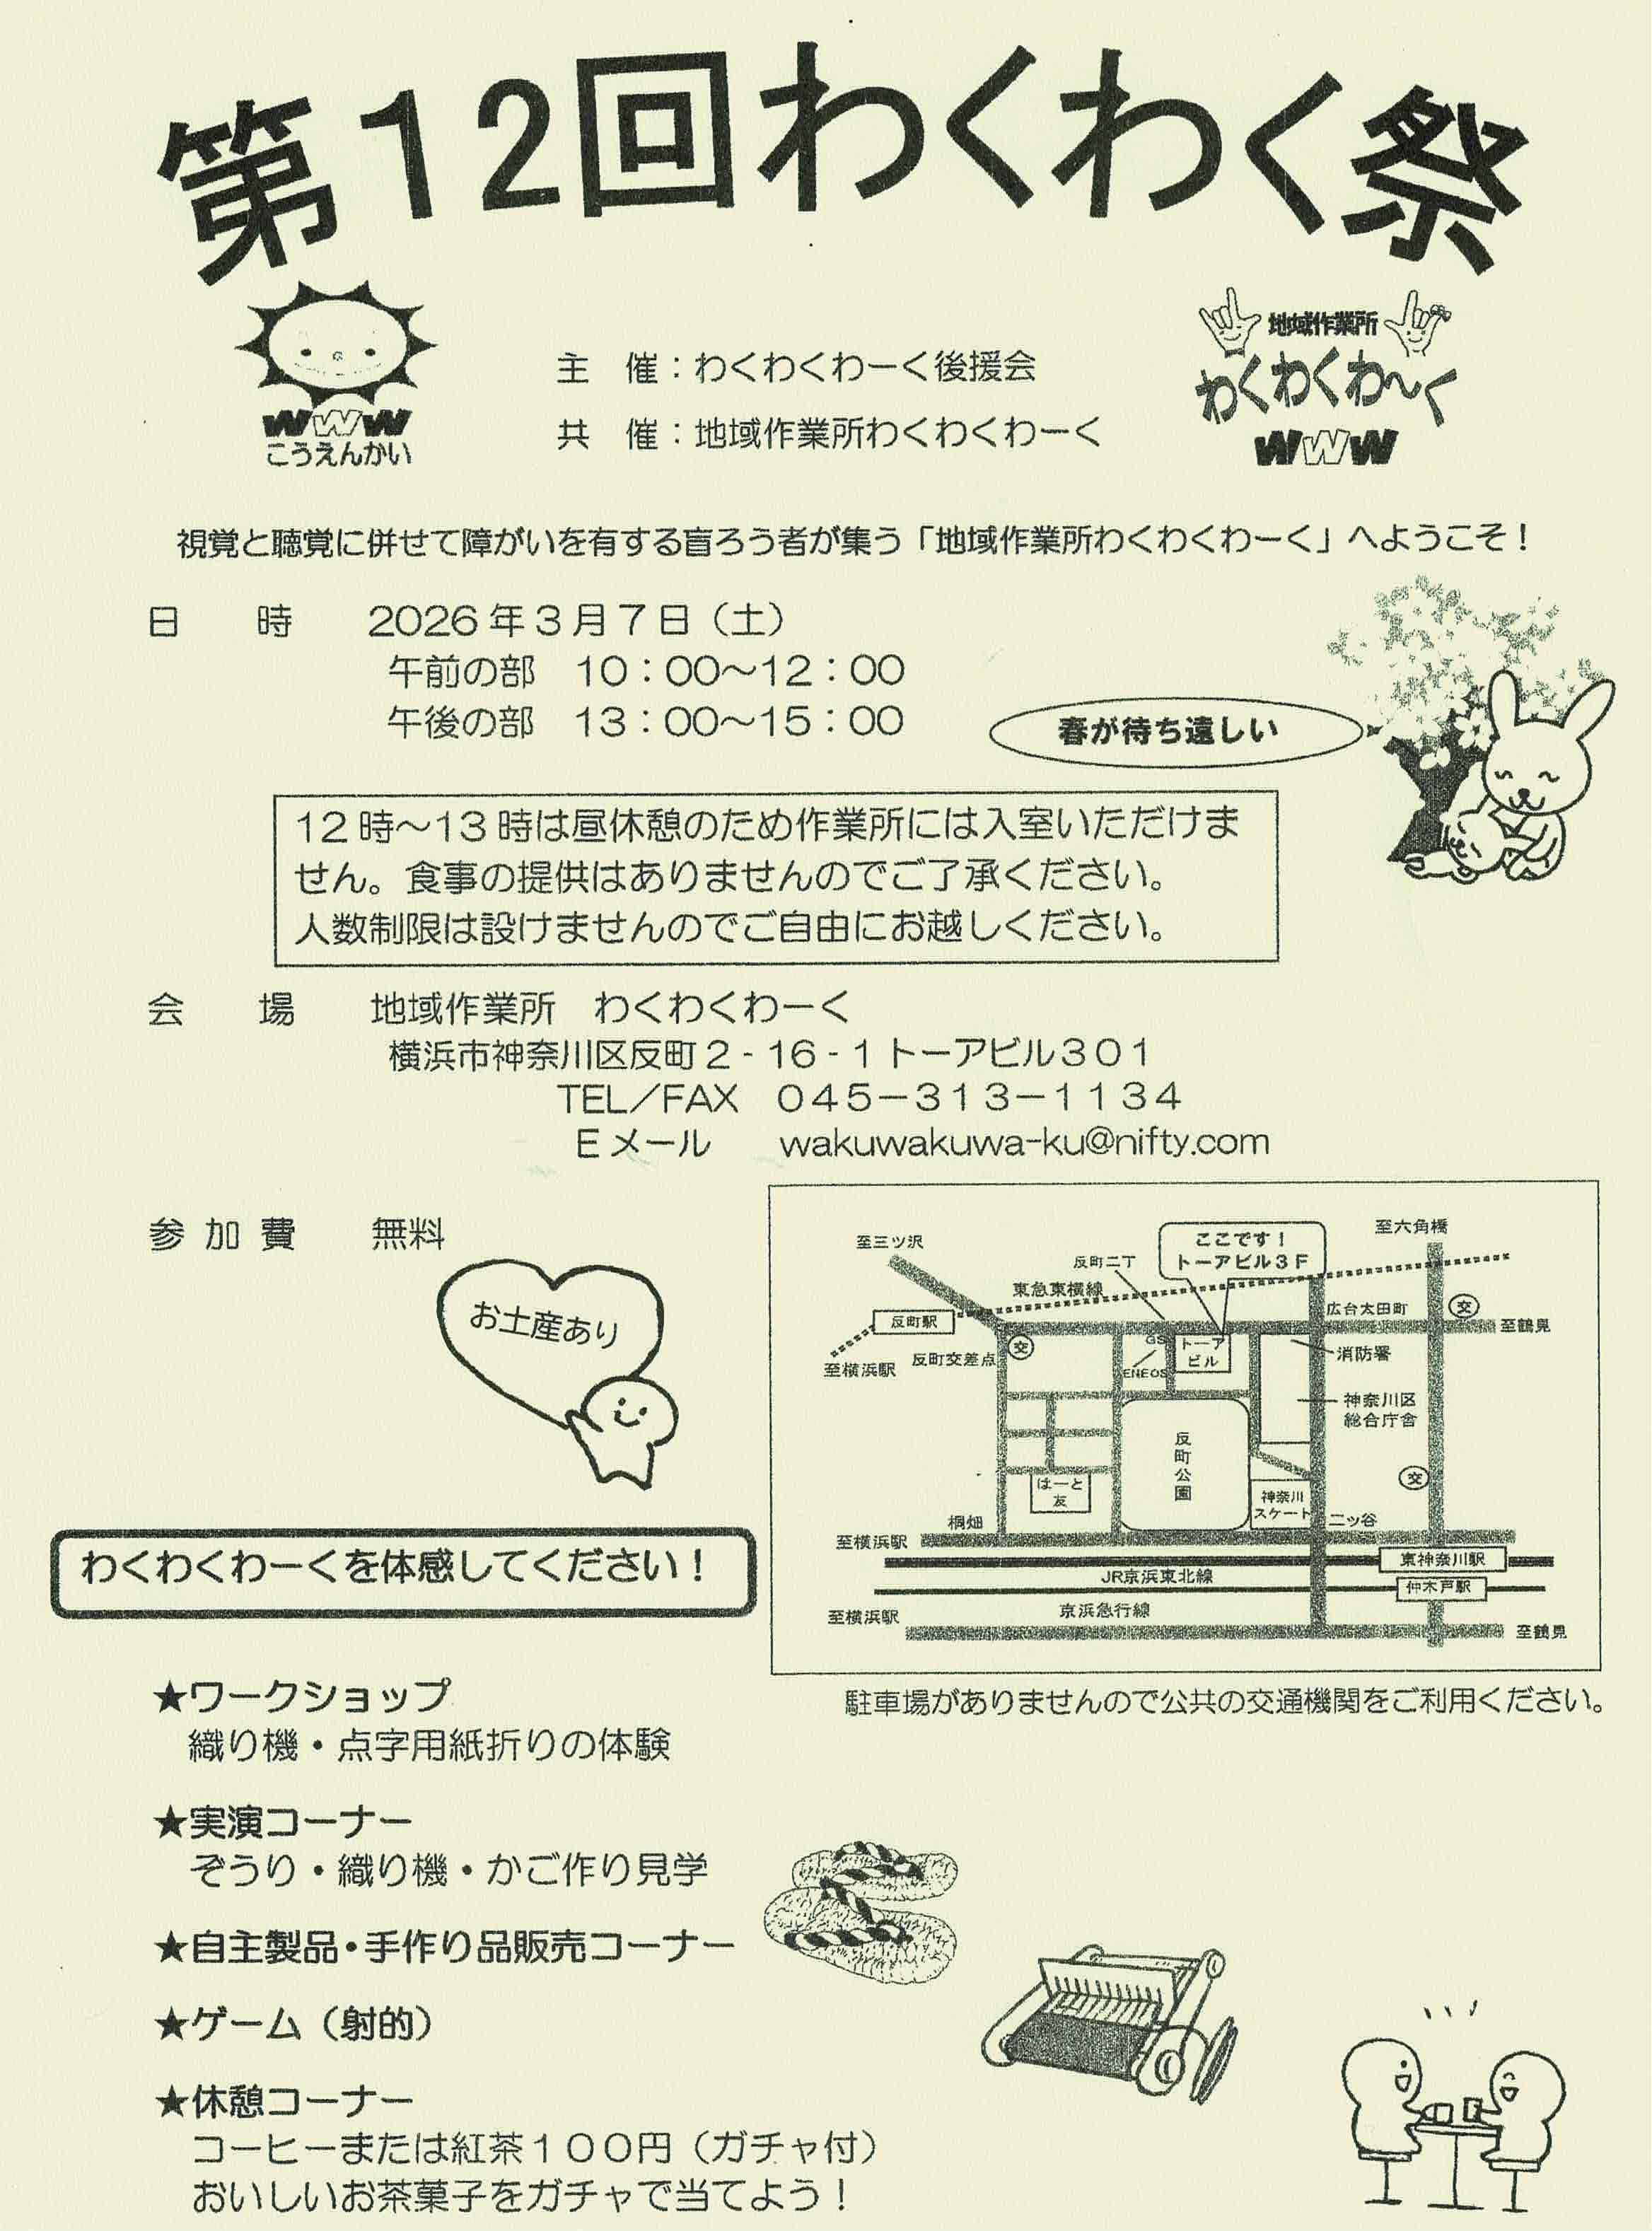 第12回わくわく祭
WWW
こうえんかい
主　催：わくわくわーく後援会
共　催：地域作業所わくわくわーく
地域作業所
わくわくわ～く
WWW
視覚と聴覚に併せて障がいを有する盲ろう者が集う「地域作業所わくわくわーく」へようこそ！
日　時　2026年3月7日（土）
午前の部　10：00～12：00
午後の部　13：00～15：00
春が待ち遠しい
12時～13時は昼休憩のため作業所には入室いただけま
せん。食事の提供はありませんのでご了承ください。
人数制限は設けませんのでご自由にお越しください。
会　場　地域作業所　わくわくわーく
横浜市神奈川区反町２-16-１トーアビル３０１
TEL／FAX　０４５－３１３－１１３４
Eメール　wakuwakuwa-ku@nifty.com
参加費　無料
お土産あり
至三ツ沢
反町二丁
ここです！
トーアビル３F
至六角橋
東急東横線
反町駅
広台太田町
交
至鶴見
至横浜駅
反町交差点
交
GS
ENEOS
トーア
ビル
消防署
神奈川区
総合庁舎
反町公園
はーと
友
神奈川
スケート
交
桐畑
二ッ谷
至横浜駅
東神奈川駅
JR京浜東北線
仲木戸駅
京浜急行線
至横浜駅
至鶴見
駐車場がありませんので公共の交通機関をご利用ください。
わくわくわーくを体感してください！
★ワークショップ
織り機・点字用紙折りの体験
★実演コーナー
ぞうり・織り機・かご作り見学
★自主製品・手作り品販売コーナー
★ゲーム（射的）
★休憩コーナー
コーヒーまたは紅茶１００円（ガチャ付）
おいしいお茶菓子をガチャで当てよう！